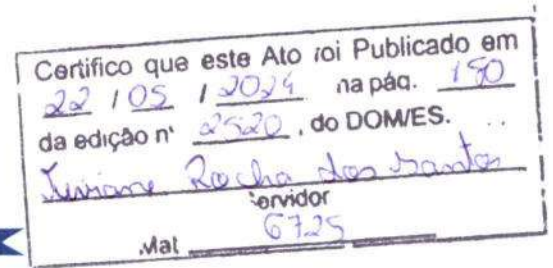 Certifico que este Ato foi Publicado em
22 / 05 / 2024 na pág. 150
da edição nº 2520, do DOM/ES.
Rocha dos Santos
Servidor
Mat 6725